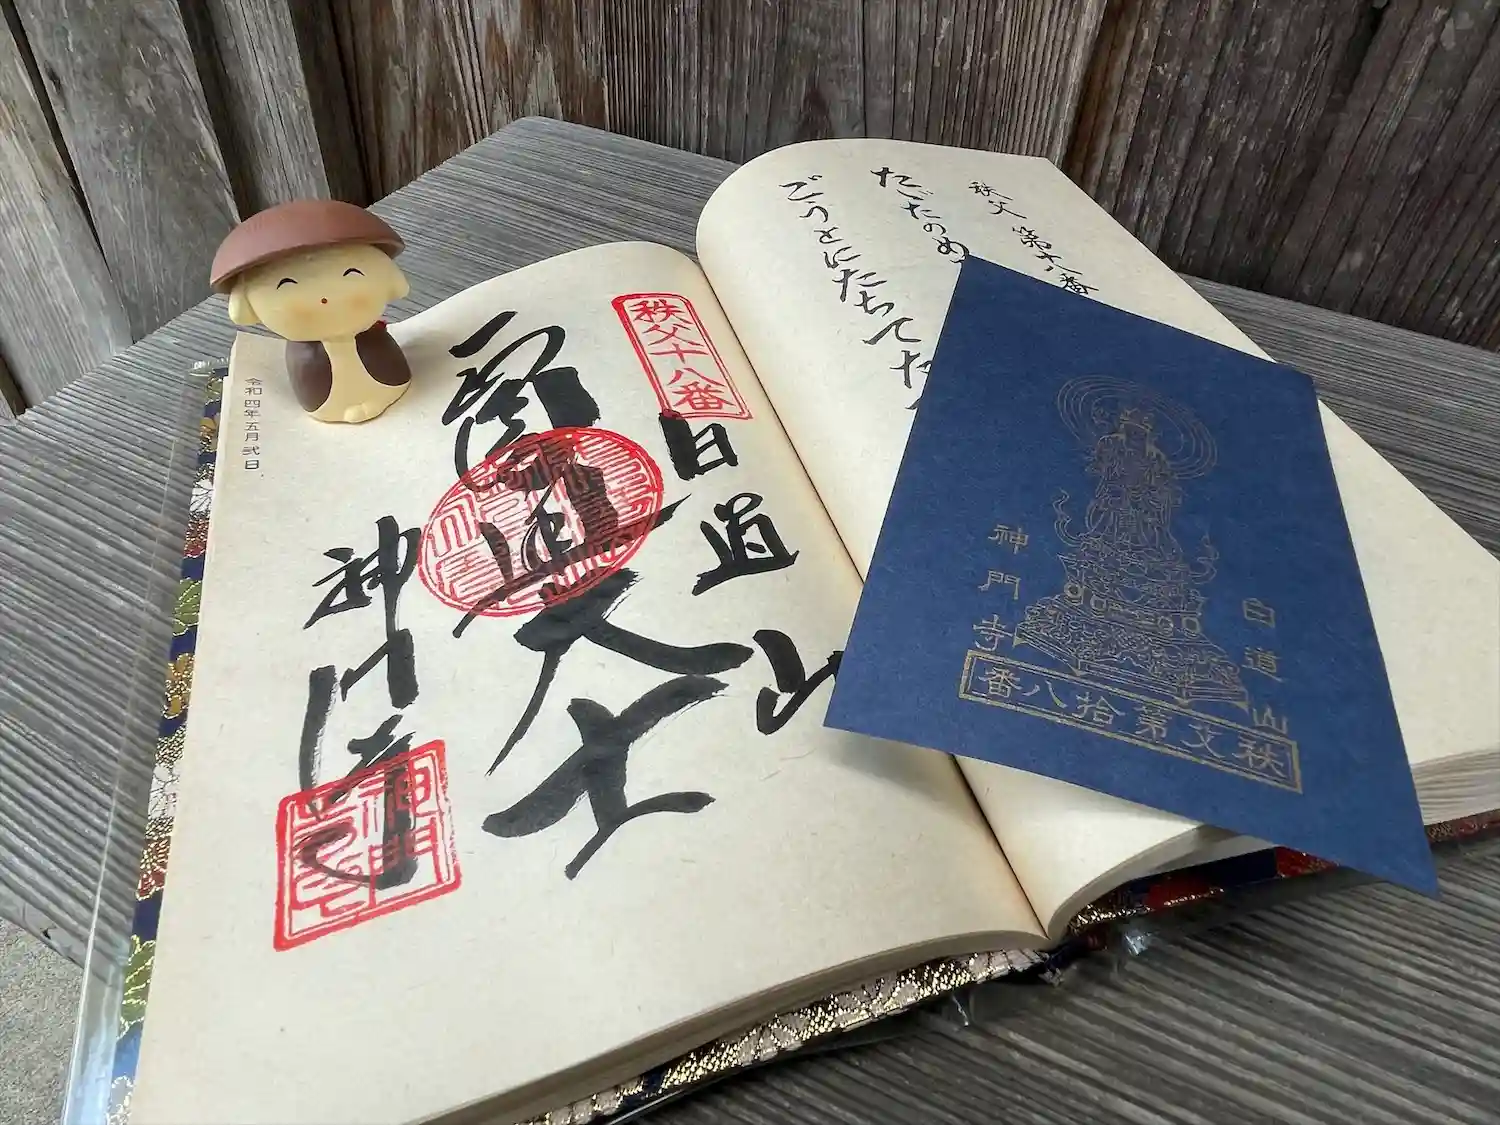 秩父 第十八番
たゞたのめ
ごうとにたちてた
秩父十八番
白道山
大士
神門寺
神門
令和四年五月弐日
白道山
神門寺
秩父第拾八番